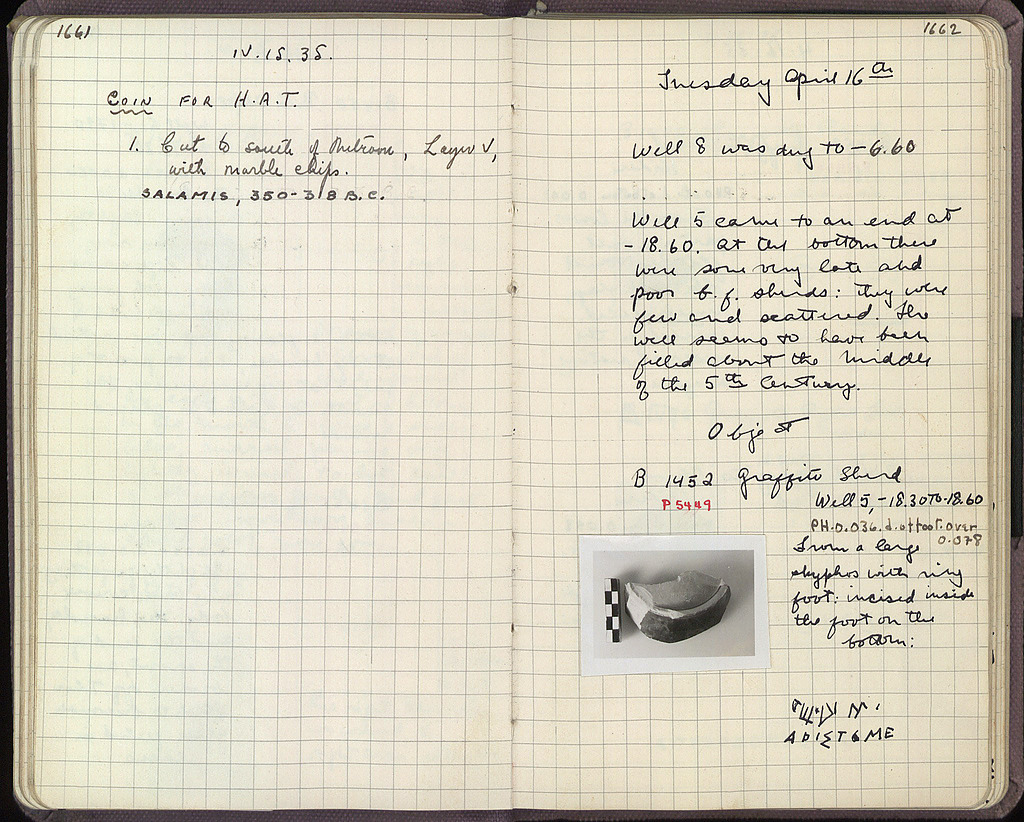 1661
IV.15.35.
COIN FOR H.A.T.
1. Cut to south of Metroon, Layer V,
with marble chips.
SALAMIS, 350-318 B.C.
1662
Tuesday April 16th
Well 8 was dug to -6.60
Well 5 came to an end at
-18.60. At the bottom there
were some very late and
poor b.f. sherds: they were
few and scattered. The
well seems to have been
filled about the middle
of the 5th Century.
Object
B 1452 Graffito Sherd
P 5449
Well 5, -18.30 to -18.60
PH.0.036. d. of foot. over
0.078
From a large
skyphos with ring
foot: incised inside
the foot on the
bottom: